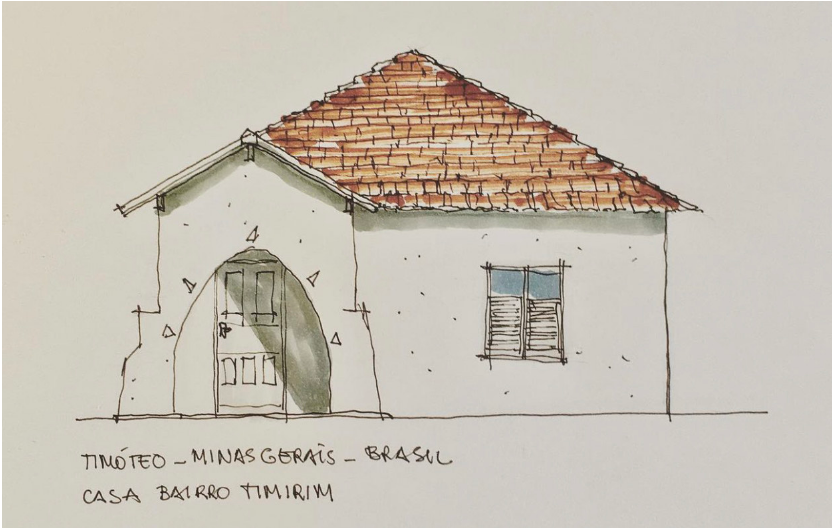 TIMÓTEO - MINAS GERAIS - BRASIL
CASA BAIRRO TIMIRIM